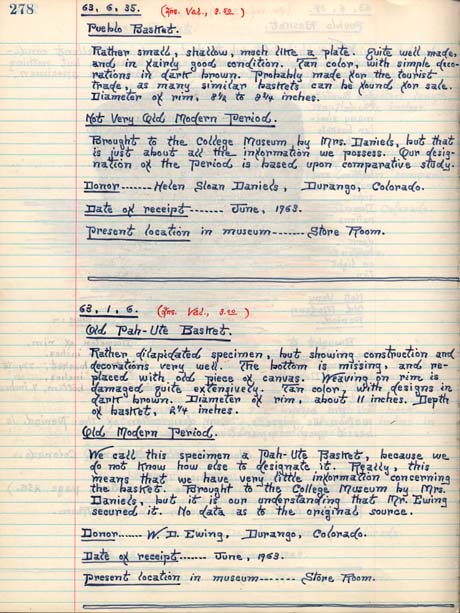 278
63. 6. 35. (Ins. Val., 3.50)
Pueblo Basket.
Rather small, shallow, much like a plate. Quite well made,
and in fairly good condition. Tan color, with simple deco-
rations in dark brown. Probably made for the tourist
trade, as many similar baskets can be found for sale.
Diameter of rim, 8½ to 8¾ inches.
Not Very Old Modern Period.
Brought to the College Museum by Mrs. Daniels, but that
is just about all the information we possess. Our desig-
nation of the period is based upon comparative study.
Donor------Helen Sloan Daniels, Durango, Colorado.
Date of receipt------- June, 1963.
Present location in museum-------Store Room.
63. 1. 6. (Ins. Val.,
Old Pah-Ute Basket.
Rather dilapidated specimen, but showing construction and
decorations very well. The bottom is missing, and re-
placed with old piece of canvas. Weaving on rim is
damaged quite extensively. Tan color, with designs in
dark brown. Diameter of rim, about 11 inches. Depth
of basket, 2¼ inches.
Old Modern Period.
We call this specimen a Pah-Ute Basket, because we
do not know how else to designate it. Really, this
means that we have very little information concerning
the basket. Brought to the College Museum by Mrs.
Daniels, but it is our understanding that Mr. Ewing
secured it. No data as to the original source.
Donor------ W. D. Ewing, Durango, Colorado.
Date of receipt------ June, 1963.
Present location in museum------- Store Room.